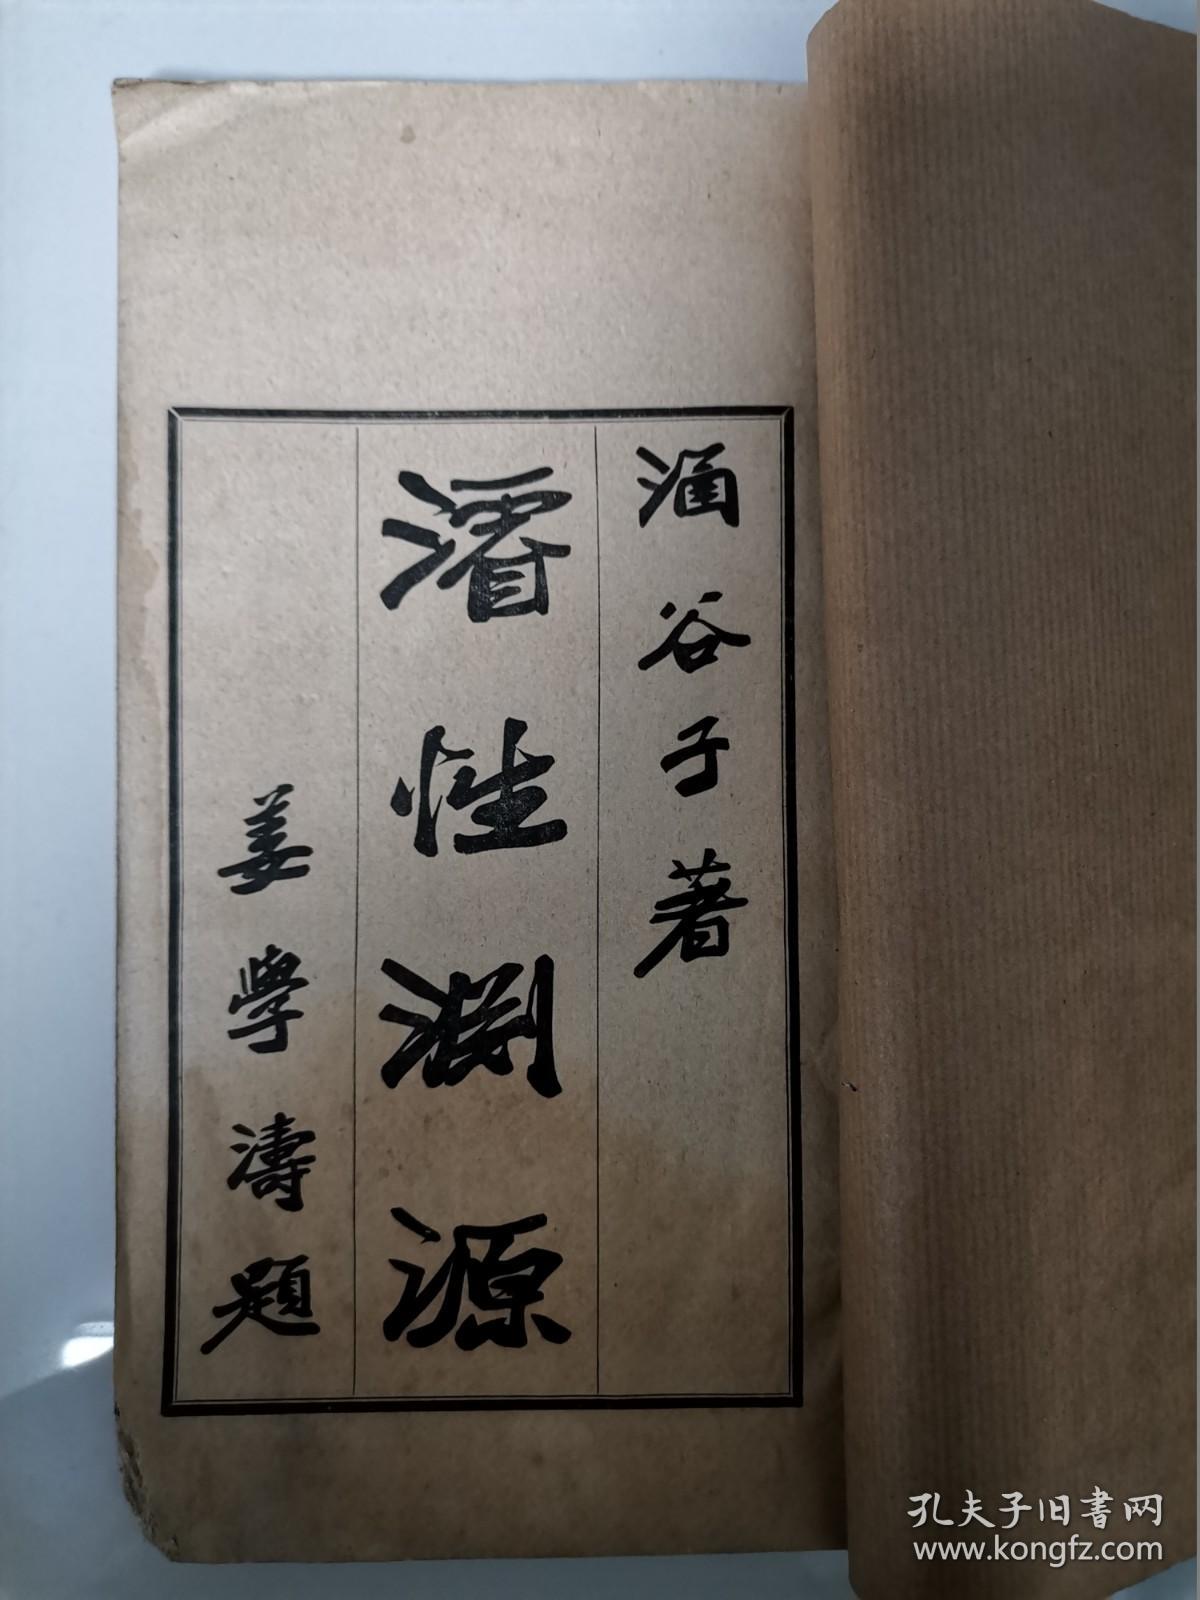 涵谷子著
濬性淵源
姜學濤題
孔夫子旧書网
www.kongfz.com